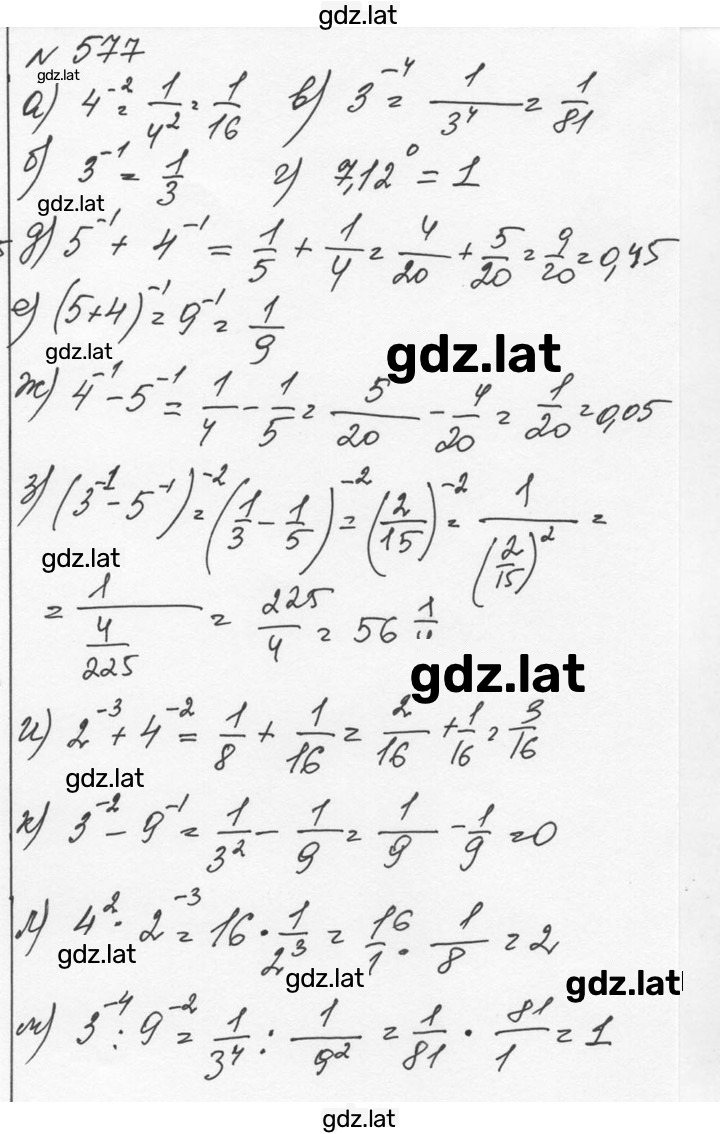 gdz.lat
N 577
gdz.lat
а) 4^-2 = 1/4^2 = 1/16   в) 3^-4 = 1/3^4 = 1/81
б) 3^-1 = 1/3   г) 7,12^0 = 1
gdz.lat
д) 5^-1 + 4^-1 = 1/5 + 1/4 = 4/20 + 5/20 = 9/20 = 0,45
е) (5+4)^-1 = 9^-1 = 1/9
gdz.lat
gdz.lat
ж) 4^-1 - 5^-1 = 1/4 - 1/5 = 5/20 - 4/20 = 1/20 = 0,05
з) (3^-1 - 5^-1)^-2 = (1/3 - 1/5)^-2 = (2/15)^-2 = 1/(2/15)^2 =
gdz.lat
= 1/(4/225) = 225/4 = 56
gdz.lat
и) 2^-3 + 4^-2 = 1/8 + 1/16 = 2/16 + 1/16 = 3/16
gdz.lat
к) 3^-2 - 9^-1 = 1/3^2 - 1/9 = 1/9 - 1/9 = 0
л) 4^2 · 2^-3 = 16 · 1/2^3 = 16/1 · 1/8 = 2
gdz.lat
gdz.lat
gdz.lat
м) 3^-4 : 9^-2 = 1/3^4 : 1/9^2 = 1/81 · 81/1 = 1
gdz.lat